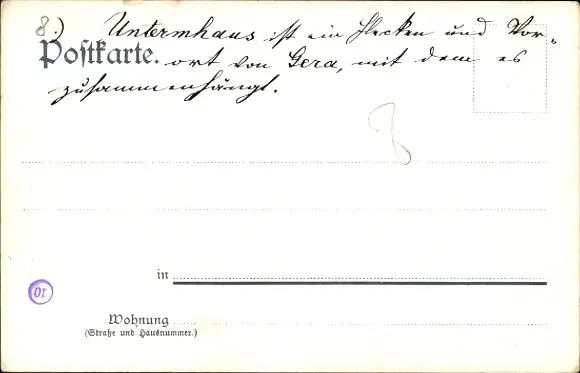 8.) Untermhaus ist ein Flecken und Vor-
Postkarte. ort von Gera, mit dem es
zusammenhängt.
8
in
10
Wohnung
(Straße und Hausnummer.)